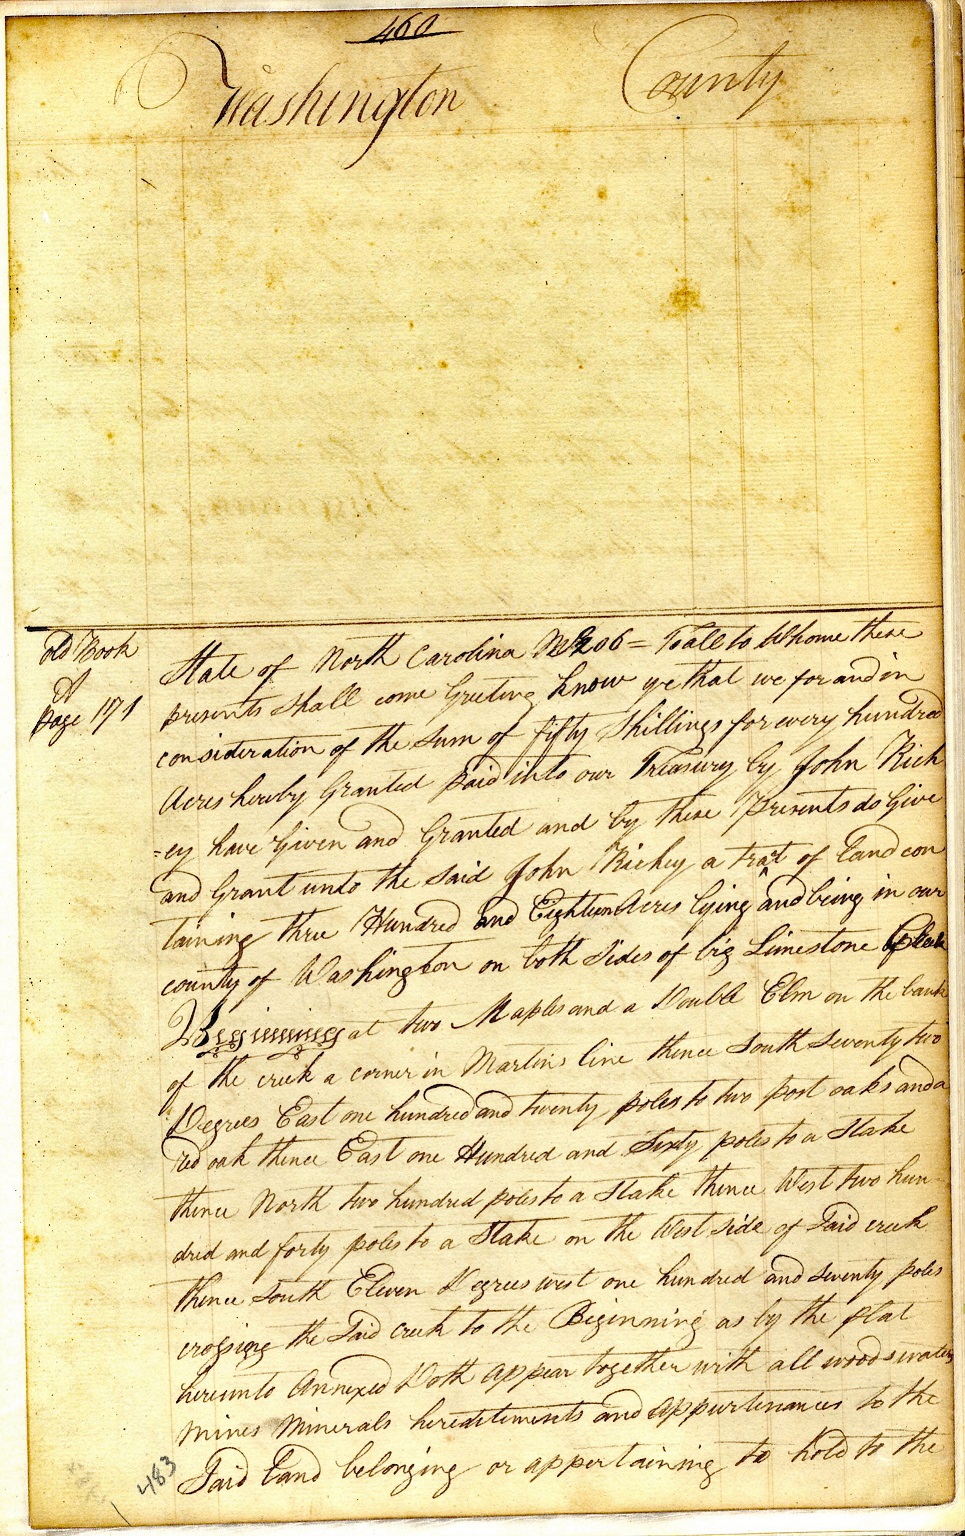 460
Washington County
old Book
A
page 171
State of North Carolina No 206 = To all to Whome these
presents shall come Greeting know ye that we for and in
consideration of the sum of fifty Shillings for every hundred
Acres hereby Granted paid into our Treasury by John Rich
=ey have Given and Granted and by these Presents do Give
and Grant unto the said John Richey a tract of Land con
taining three Hundred and Eighteen Acres lying and being in our
county of Washington on both Sides of big Limestone Creek
Beginning at two Maples and a Double Elm on the bank
of the creek a corner in Martins line thence South Seventy two
Degrees East one hundred and twenty poles to two post oaks and a
red oak thence East one Hundred and Sixty poles to a Stake
thence North two hundred poles to a Stake thence West two hun
dred and forty poles to a Stake on the West side of Said creek
thence South Eleven Degrees west one hundred and seventy poles
crossing the Said creek to the Beginning as by the plat
hereunto Annexed Doth appear together with all woods waters
mines minerals hereditements and appurtenances to the
Said Land belonging or appertaining to hold to the
483